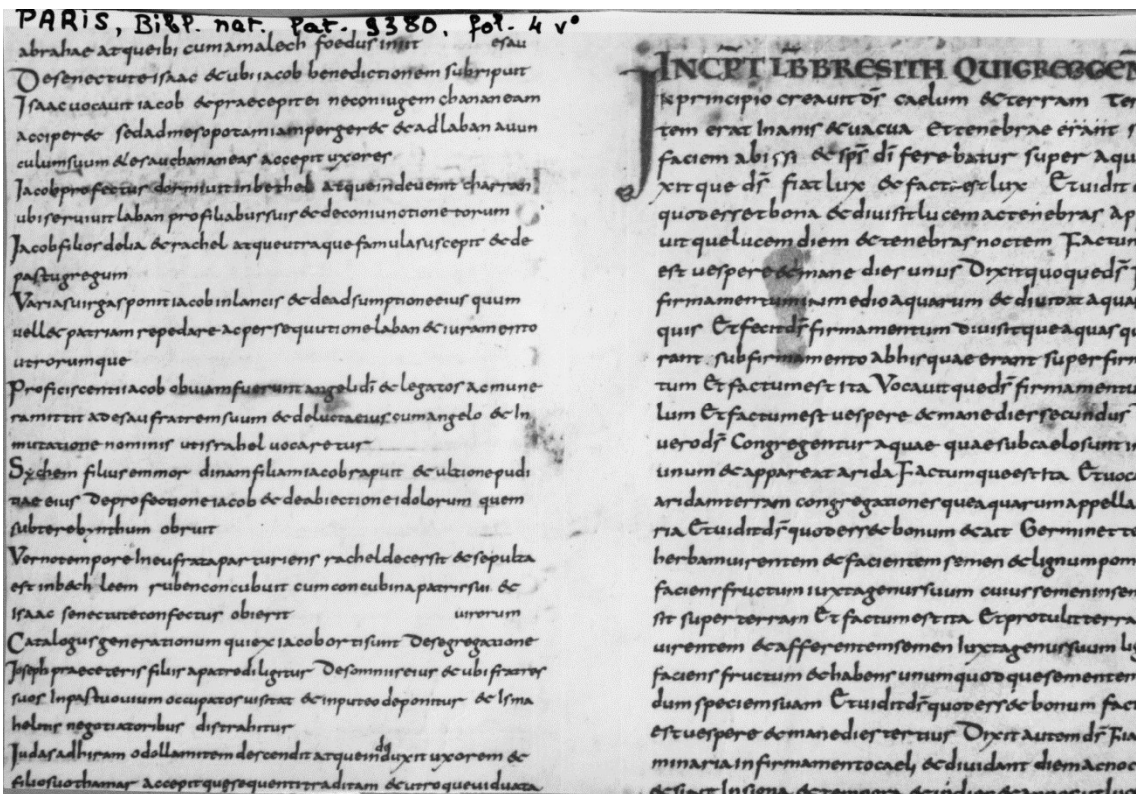 PARIS, Bibl. nat. Lat. 9380. fol. 4 v°
abrahae atque ibi cum amalech foedus iniit esau
De senectute isaac & ubi iacob benedictionem subripuit
Isaac vocavit iacob & praecepit ei ne coniugem chananeam
acciper& sed ad mesopotamiam perger& & ad laban avun
culum suum & esau chananeas accepit uxores
Iacob profectus dormivit in bethel atque inde venit charran
ubi servivit laban pro filiabus suis & de coniunctione torum
Iacob filios de lia & rachel atque utraque famula suscepit & de
pastu gregum
Varias uirgas ponit iacob in lancis & de adsumptione eius quum
vell& patriam repedare ac persequutione laban & iuramento
utrorumque
Proficiscenti iacob obviam fuerunt angeli dī & legatos ac mune
ra mittit ad esau fratrem suum & de lucta eius cum angelo & in
mutatione nominis ut israhel vocaretur
Sychem filius emmor dinam filiam iacob rapuit & ultione pudi
tiae eius De profectione iacob & de abiectione idolorum quem
subter ebynthum obruit
Verno tempore in eufrata parturiens rachel decessit & sepulta
est in b&hleem ruben concubuit cum concubina patris sui &
Isaac senectute confectus obierit uirorum
Catalogus generationum qui ex iacob orti sunt De segregatione
Ioseph prae ceteris filiis a patre diligitur De somniis eius & ubi fratres
suos in pastu ovium occupatos visitat & in puteo deponitur & Isma
helitis negotiatoribus distrahitur
Iudas ad hiram odollamitem descendit atque inde duxit uxorem &
filio suo thamar accepit que sequenti traditam & utroque viduata
INCPT LB BRESITH QUI GR
In principio creavit dS caelum & terram Ter
tem erat inanis & vacua Et tenebrae erant s
faciem abissi & sps di ferebatur super aqu
xitque ds fiat lux & fact est lux Et vidit d
quod esset bona & divisit lucem ac tenebras Ap
uitque lucem diem & tenebras noctem Factum
est vespere & mane dies unus Dixit quoque ds F
firmamentum in medio aquarum & dividat aqua
quis Et fecit ds firmamentum divisitque aquas qu
rant sub firmamento ab his quae erant super firm
tum Et factum est ita Vocavitque ds firmamentu
lum Et factum est vespere & mane dies secundus
vero ds Congregentur aquae quae sub caelo sunt in
unum & appareat arida Factumque est ita Et voca
aridam terram congregationesque aquarum appella
ria Et vidit ds quod ess& bonum & ait Germinet te
herbam virentem & facientem semen & lignum pom
faciens fructum iuxta genus suum cuius semen in sem
sit super terram Et factum est ita Et protulit terra
virentem & afferentem semen iuxta genus suum lig
faciens fructum & habens unumquodque sementem
dum speciem suam Et vidit ds quod ess& bonum fact
est vespere & mane dies tertius Dixit autem ds Fia
minaria in firmamento caeli & dividant diem ac noc
& sint in signa & tempora